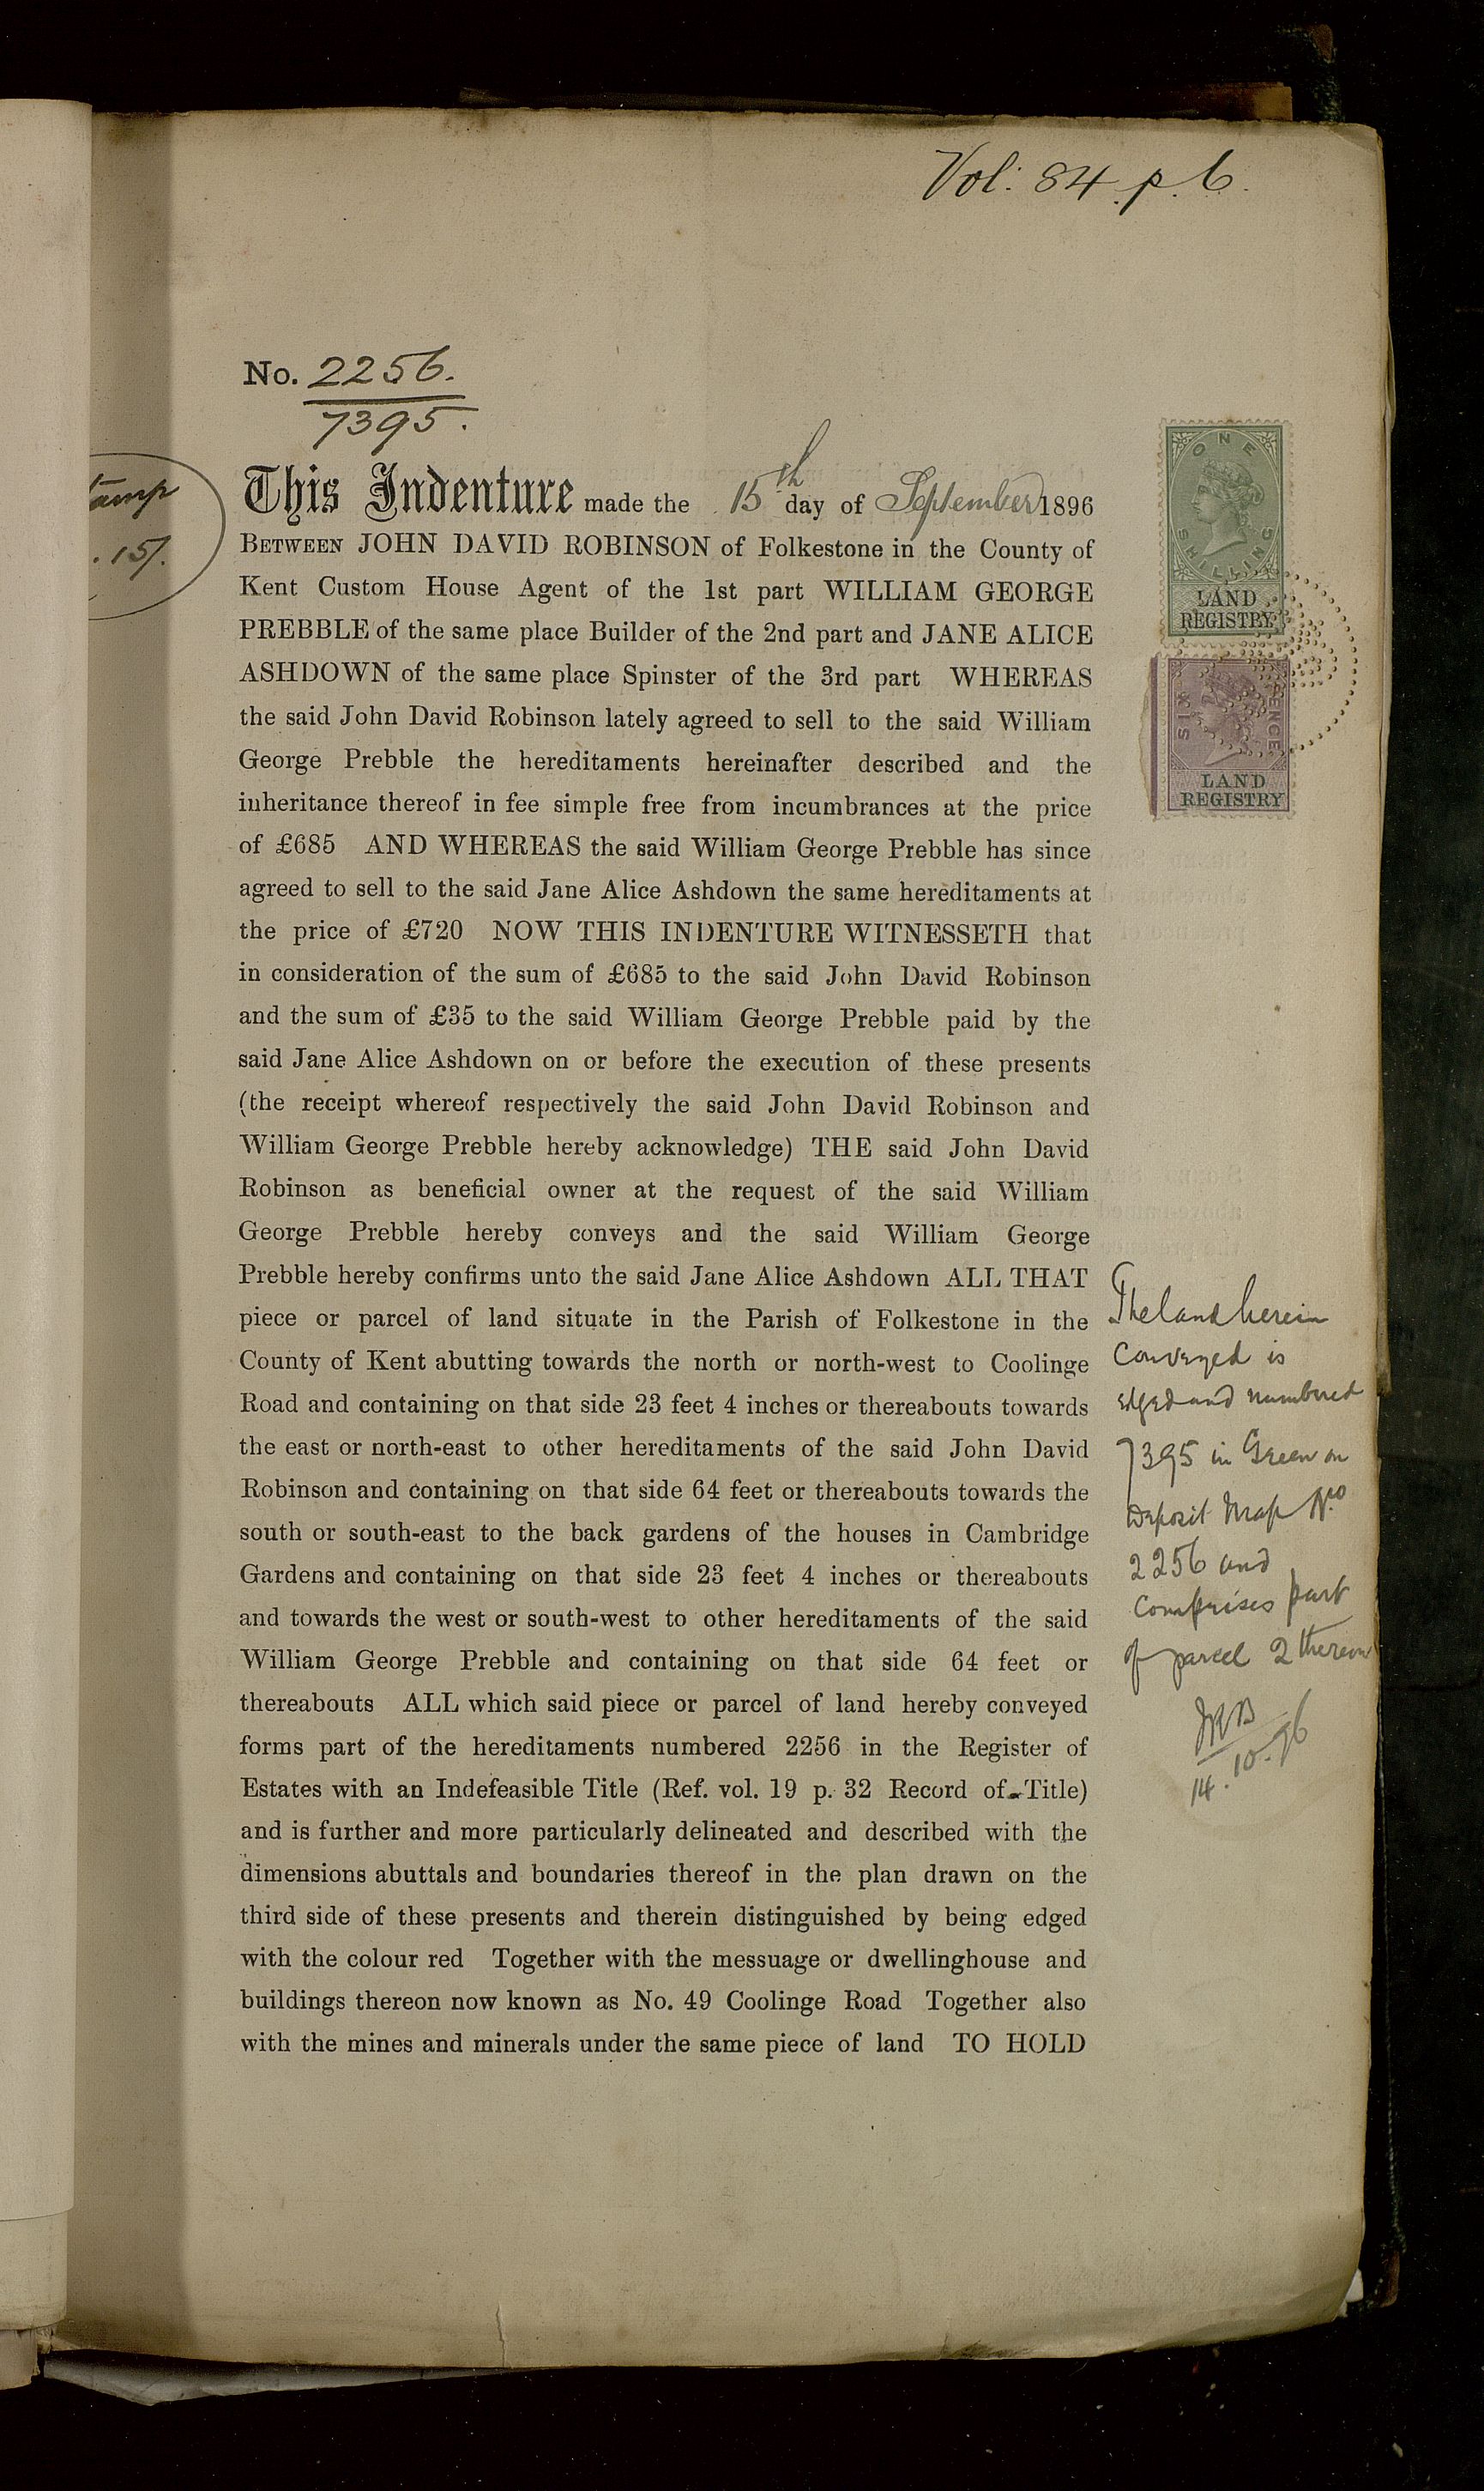 Vol: 84. p. 6.
No. 2256.
7395.
tamp
. 15/.
This Indenture made the 15th day of September 1896
BETWEEN JOHN DAVID ROBINSON of Folkestone in the County of
Kent Custom House Agent of the 1st part WILLIAM GEORGE
PREBBLE of the same place Builder of the 2nd part and JANE ALICE
ASHDOWN of the same place Spinster of the 3rd part WHEREAS
the said John David Robinson lately agreed to sell to the said William
George Prebble the hereditaments hereinafter described and the
inheritance thereof in fee simple free from incumbrances at the price
of £685 AND WHEREAS the said William George Prebble has since
agreed to sell to the said Jane Alice Ashdown the same hereditaments at
the price of £720 NOW THIS INDENTURE WITNESSETH that
in consideration of the sum of £685 to the said John David Robinson
and the sum of £35 to the said William George Prebble paid by the
said Jane Alice Ashdown on or before the execution of these presents
(the receipt whereof respectively the said John David Robinson and
William George Prebble hereby acknowledge) THE said John David
Robinson as beneficial owner at the request of the said William
George Prebble hereby conveys and the said William George
Prebble hereby confirms unto the said Jane Alice Ashdown ALL THAT
piece or parcel of land situate in the Parish of Folkestone in the
County of Kent abutting towards the north or north-west to Coolinge
Road and containing on that side 23 feet 4 inches or thereabouts towards
the east or north-east to other hereditaments of the said John David
Robinson and containing on that side 64 feet or thereabouts towards the
south or south-east to the back gardens of the houses in Cambridge
Gardens and containing on that side 23 feet 4 inches or thereabouts
and towards the west or south-west to other hereditaments of the said
William George Prebble and containing on that side 64 feet or
thereabouts ALL which said piece or parcel of land hereby conveyed
forms part of the hereditaments numbered 2256 in the Register of
Estates with an Indefeasible Title (Ref. vol. 19 p. 32 Record of Title)
and is further and more particularly delineated and described with the
dimensions abuttals and boundaries thereof in the plan drawn on the
third side of these presents and therein distinguished by being edged
with the colour red Together with the messuage or dwellinghouse and
buildings thereon now known as No. 49 Coolinge Road Together also
with the mines and minerals under the same piece of land TO HOLD
ONE
SHILLING
LAND
REGISTRY
SIX
PENCE
LAND
REGISTRY
The land herein
Conveyed is
edged and numbered
7395 in Green on
Deposit Map No
2256 and
Comprises part
of parcel 2 thereon
14.10.96